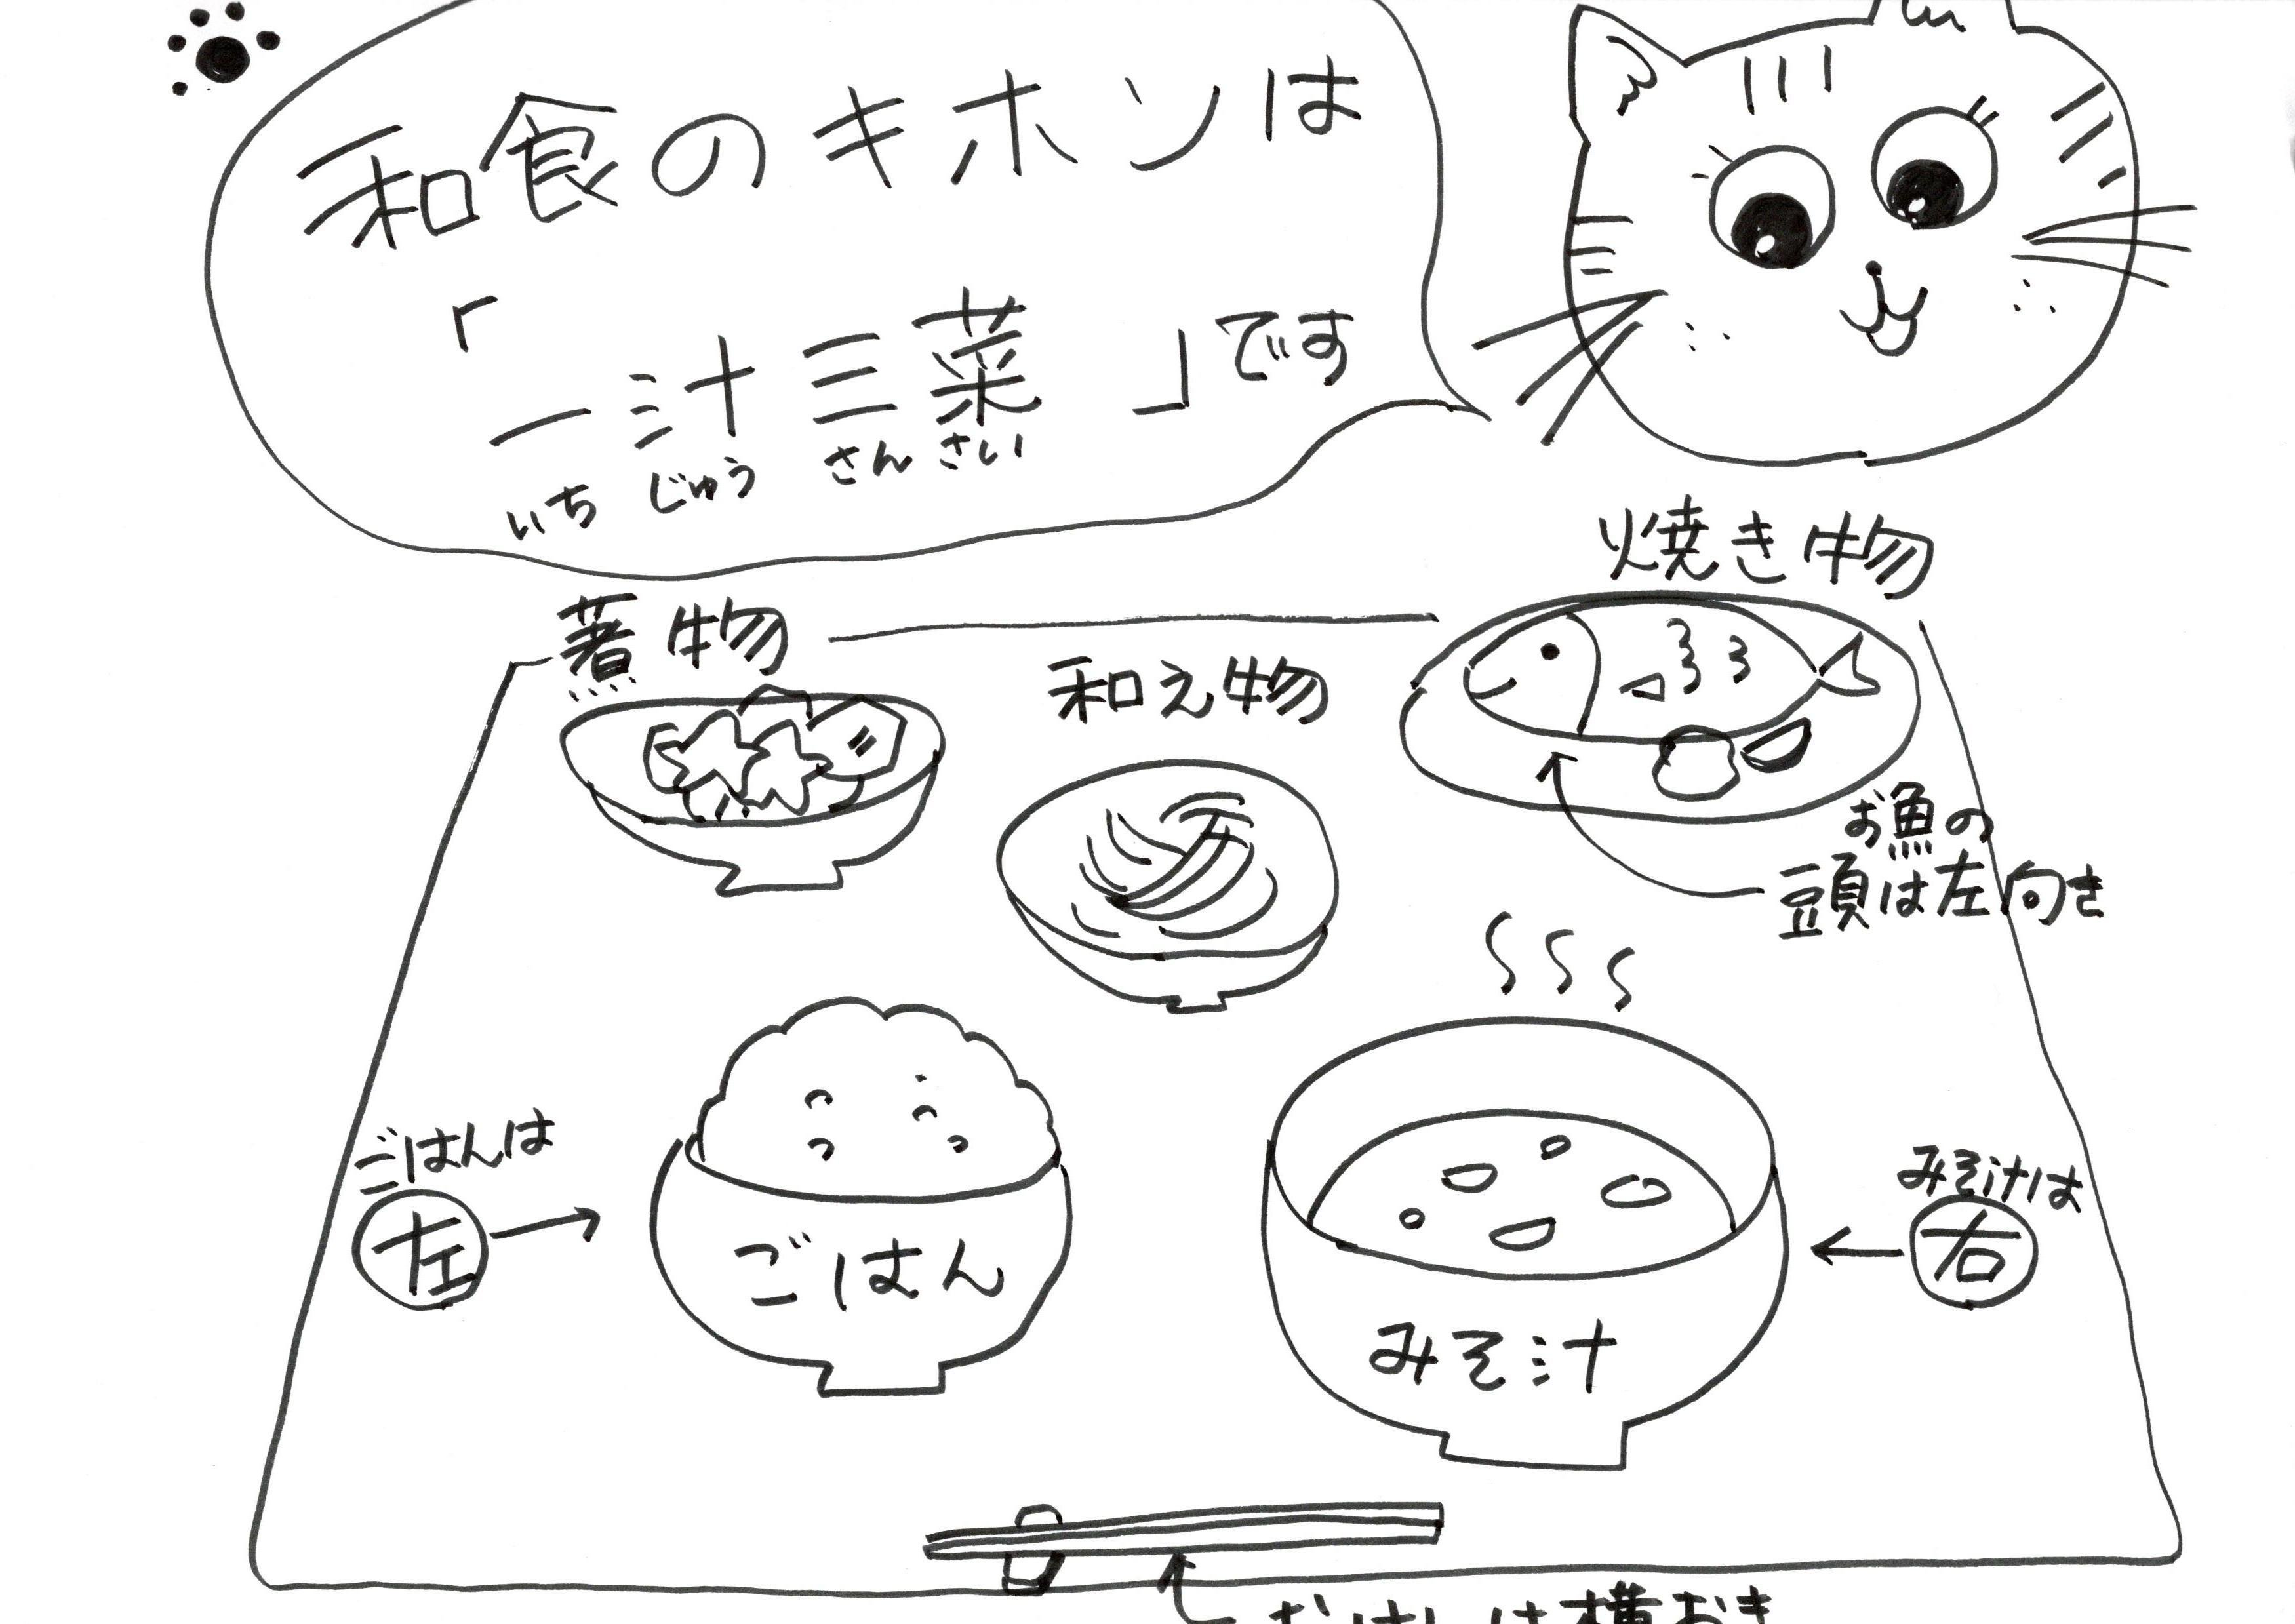 和食のキホンは
「一汁三菜」です
いち じゅう さん さい
焼き物
煮物
和え物
お魚の
頭は左向き
ごはんは
左
ごはん
みそ汁は
右
みそ汁
おはしは横おき